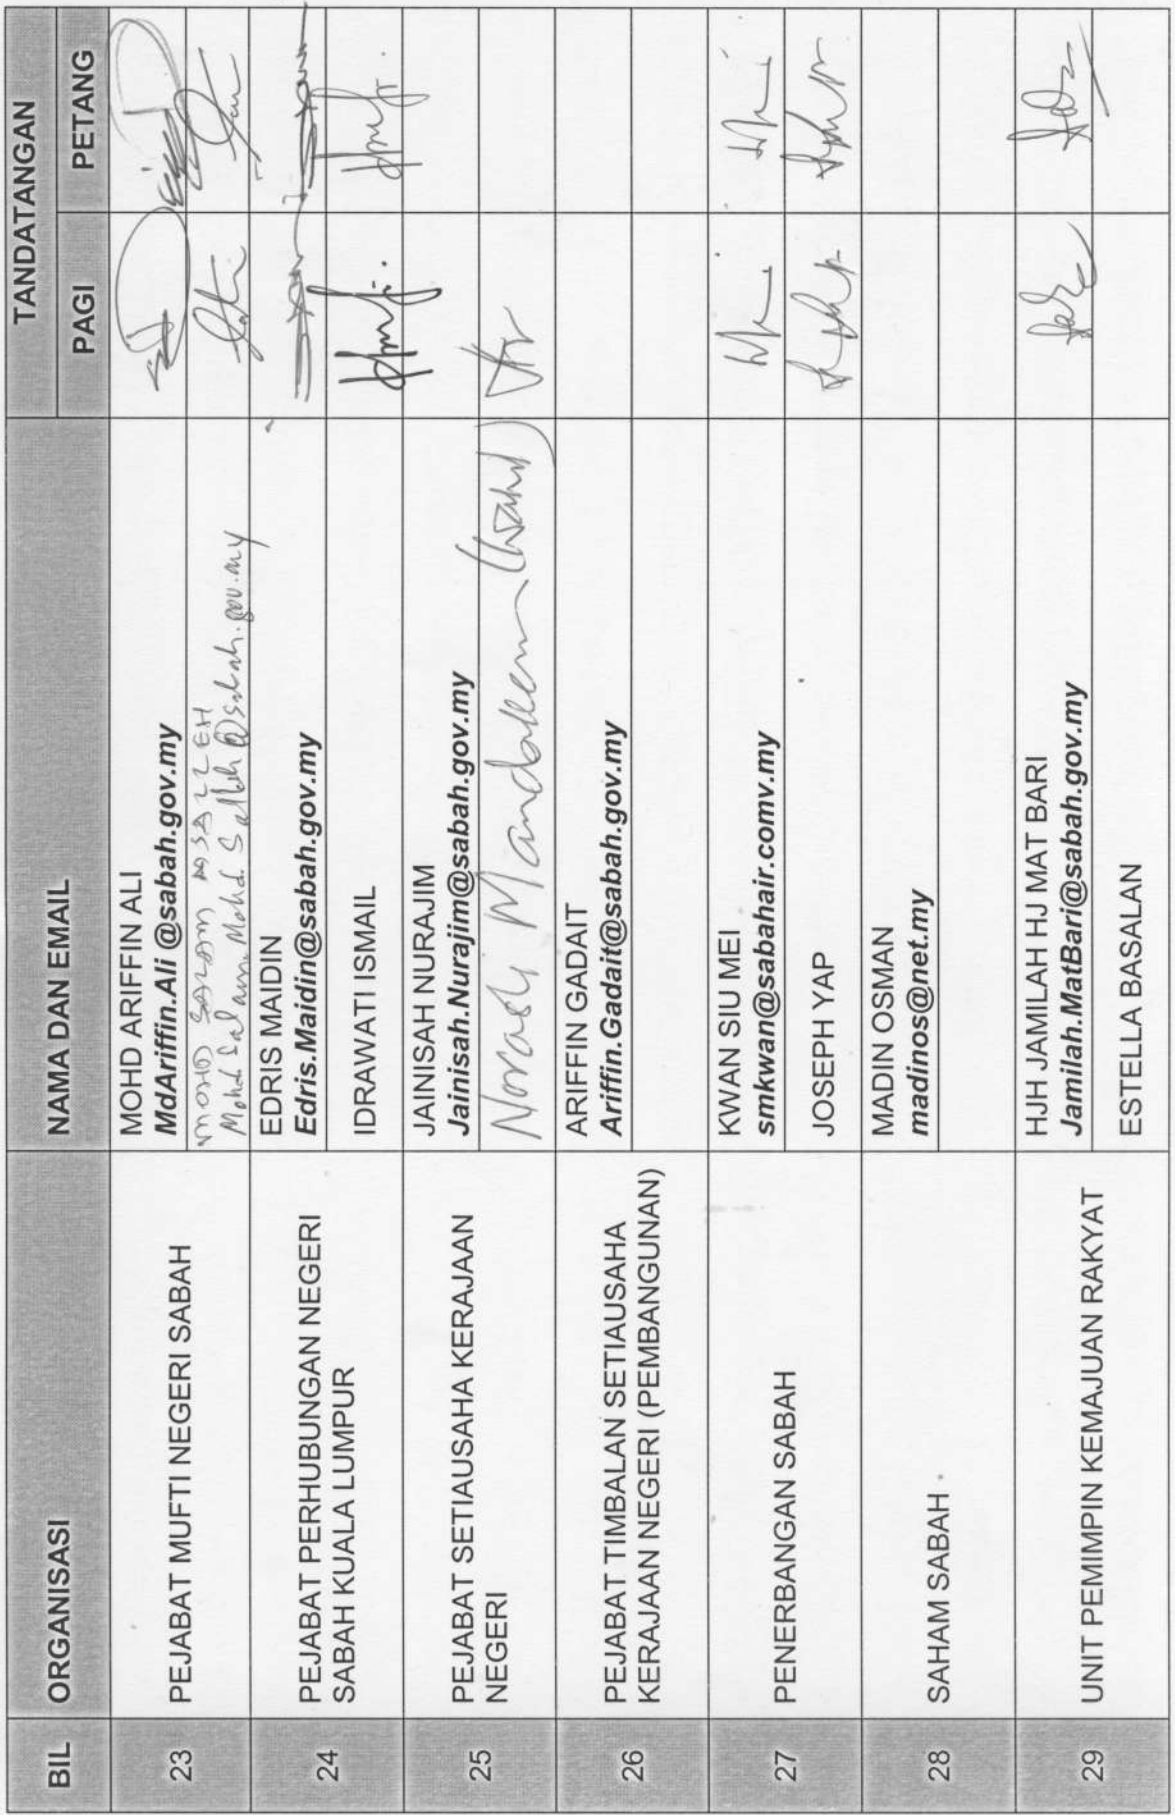 BIL ORGANISASI NAMA DAN EMAIL TANDATANGAN
PAGI PETANG
23 PEJABAT MUFTI NEGERI SABAH
MOHD ARIFFIN ALI
MdAriffin.Ali @sabah.gov.my
MOHD SALAM M SALLEH
Mohd Salam. Mohd. Salleh@sabah.gov.my
24 PEJABAT PERHUBUNGAN NEGERI
SABAH KUALA LUMPUR
EDRIS MAIDIN
Edris.Maidin@sabah.gov.my
IDRAWATI ISMAIL
25 PEJABAT SETIAUSAHA KERAJAAN
NEGERI
JAINISAH NURAJIM
Jainisah.Nurajim@sabah.gov.my
26 PEJABAT TIMBALAN SETIAUSAHA
KERAJAAN NEGERI (PEMBANGUNAN)
ARIFFIN GADAIT
Ariffin.Gadait@sabah.gov.my
27 PENERBANGAN SABAH
KWAN SIU MEI
smkwan@sabahair.comv.my
JOSEPH YAP
28 SAHAM SABAH
MADIN OSMAN
madinos@net.my
29 UNIT PEMIMPIN KEMAJUAN RAKYAT
HJH JAMILAH HJ MAT BARI
Jamilah.MatBari@sabah.gov.my
ESTELLA BASALAN